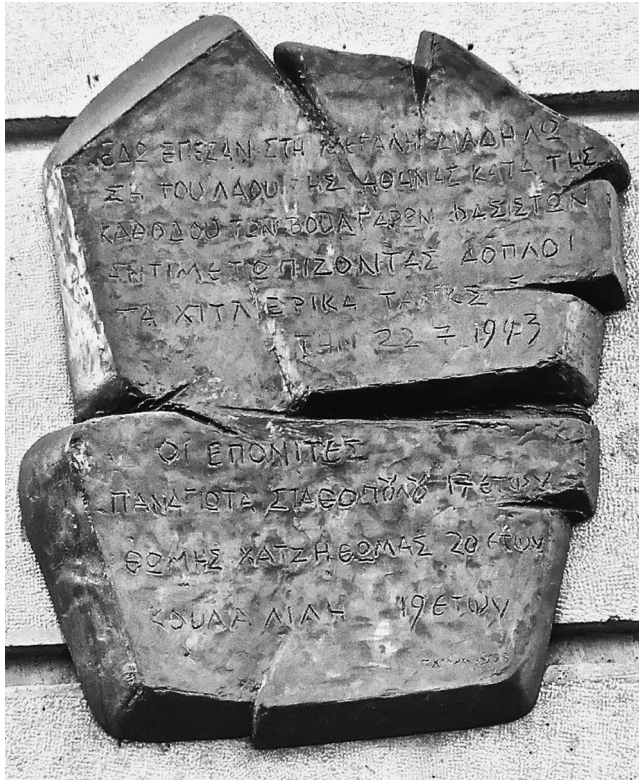 ΕΔΩ ΕΠΕΣΑΝ ΣΤΗ ΜΕΓΑΛΗ ΔΙΑΔΗΛΩ
ΣΗ ΤΟΥ ΛΑΟΥ ΤΗΣ ΑΘΗΝΑΣ ΚΑΤΑ ΤΗΣ
ΚΑΘΟΔΟΥ ΤΩΝ ΒΟΥΛΓΑΡΩΝ ΦΑΣΙΣΤΩΝ
ΑΝΤΙΜΕΤΩΠΙΖΟΝΤΑΣ ΑΟΠΛΟΙ
ΤΑ ΧΙΤΛΕΡΙΚΑ ΤΑΝΚΣ
ΤΗΝ 22 7 1943
ΟΙ ΕΠΟΝΙΤΕΣ
ΠΑΝΑΓΙΩΤΑ ΣΤΑΘΟΠȢΛȢ 17 ΕΤΩΝ
ΘΩΜΗΣ ΧΑΤΖΗΘΩΜΑΣ 20 ΕΤΩΝ
ΚΟΥΛΑ ΛΙΛΗ 19 ΕΤΩΝ